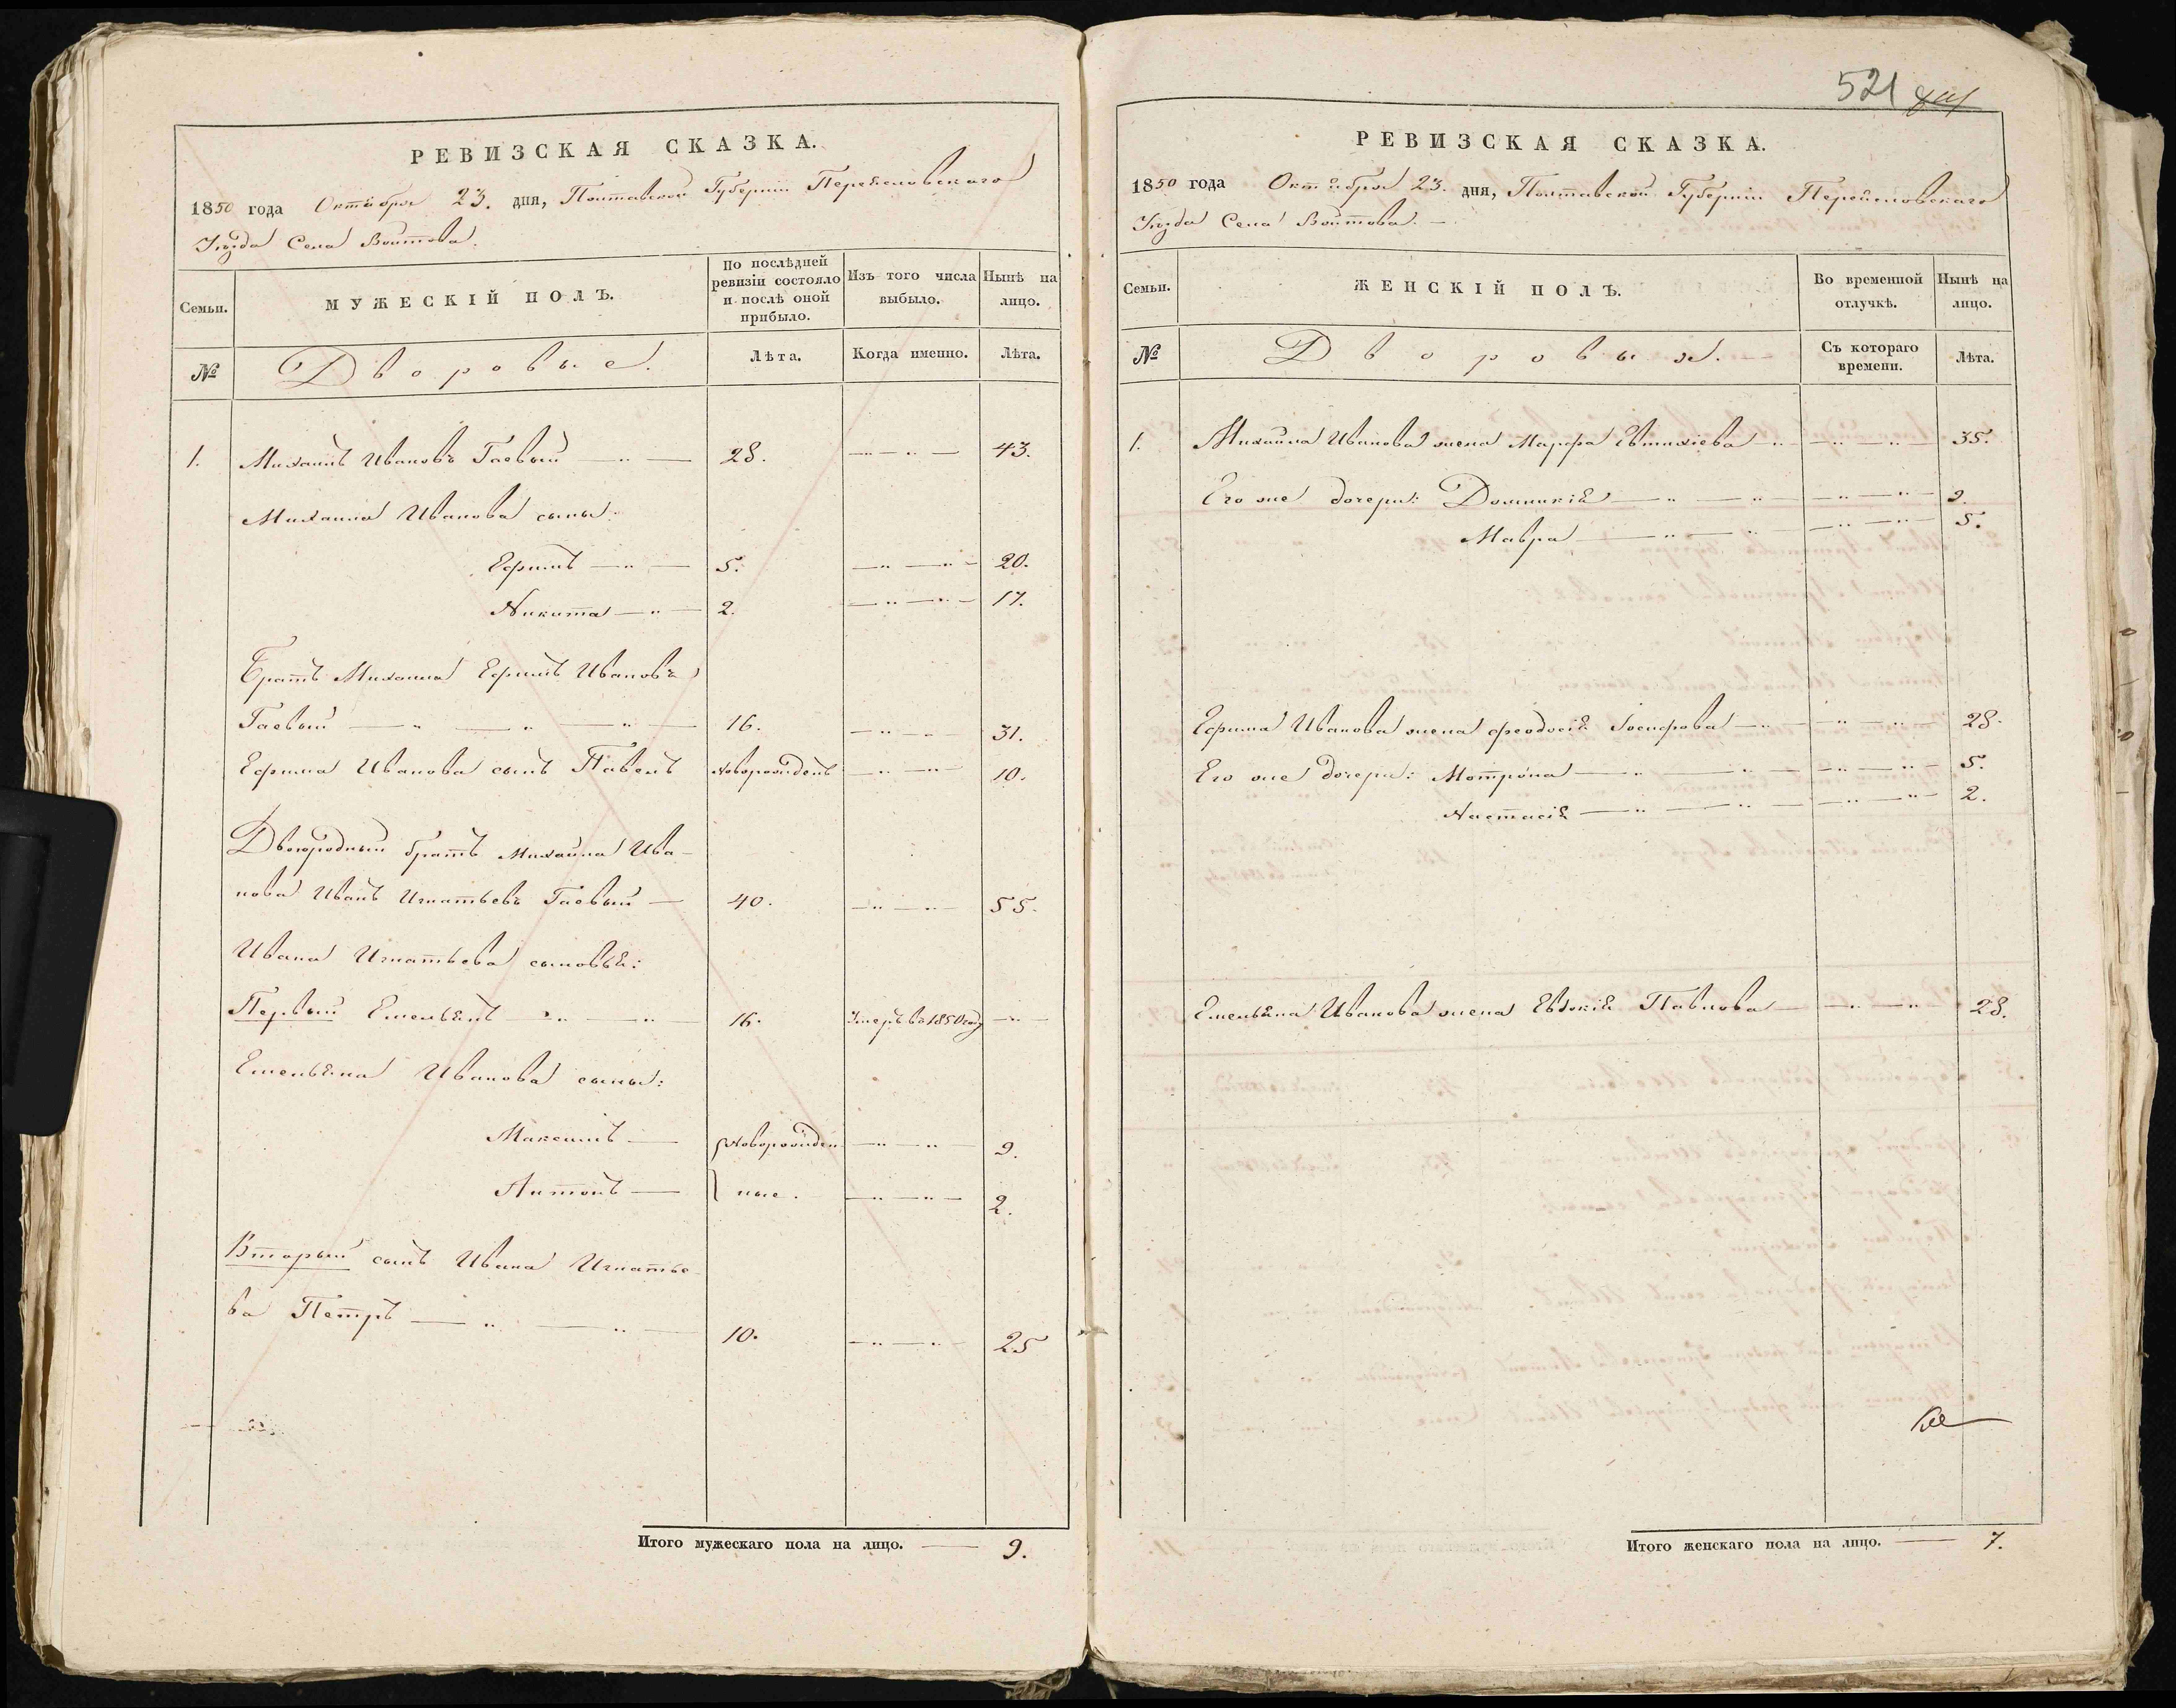 РЕВИЗСКАЯ СКАЗКА.
1850 года Октября 23. дня, Полтавской Губерніи Переясловскаго
Уѣзда Села Войтова.
Семьи.
МУЖЕСКІЙ ПОЛЪ.
По послѣдней ревизіи состояло и послѣ оной прибыло.
Изъ того числа выбыло.
Нынѣ на лицо.
№
Дворовые.
Лѣта.
Когда именно.
Лѣта.
1. Михаилъ Ивановъ Гаевый 28. 43.
Михаила Иванова сыны:
Ефимъ 5. 20.
Никита 2. 17.
Братъ Михаила Ефимъ Ивановъ
Гаевый 16. 31.
Ефима Иванова сынъ Павелъ новорожденъ 10.
Двоюродный братъ Михайла Ива-
нова Иванъ Игнатьевъ Гаевый 40. 55.
Ивана Игнатьева сыновья:
Первый Емельянъ 16. Умеръ въ 1850 году
Емельяна Иванова сыны:
Максимъ новорожден 9.
Антонъ ные. 2.
Вторый сынъ Ивана Игнатье-
ва Петръ 10. 25
Итого мужескаго пола на лицо. 9.
521
РЕВИЗСКАЯ СКАЗКА.
1850 года Октября 23. дня, Полтавской Губерніи Переясловскаго
Уѣзда Села Войтова.
Семьи.
ЖЕНСКІЙ ПОЛЪ.
Во временной отлучкѣ.
Нынѣ на лицо.
№
Дворовыя.
Съ котораго времени.
Лѣта.
1. Михайла Иванова жена Марфа Евтихіева 35.
Его же дочери: Домникія 9.
Мавра 5.
Ефима Иванова жена Феодосія Іосифова 28.
Его же дочери: Мотрона 5.
Настасія 2.
Емельяна Иванова жена Евдокія Павлова 28.
Итого женскаго пола на лицо. 7.